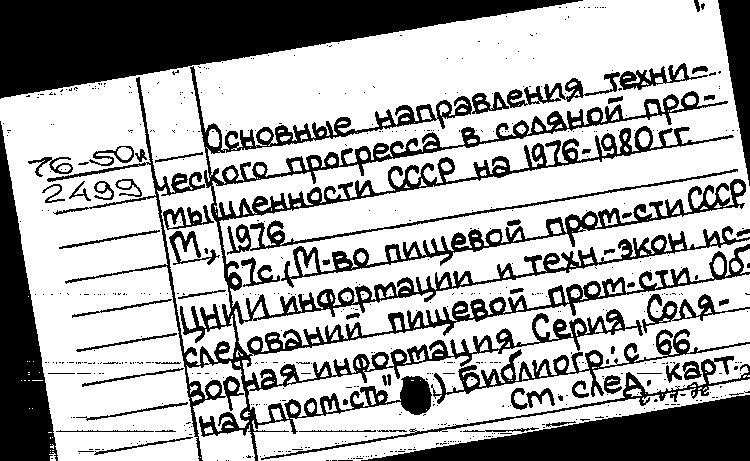 1.
Основные направления техни-
76-50и
ческого прогресса в соляной про-
2499
мышленности СССР на 1976-1980 гг.
М., 1976.
67с. (М-во пищевой пром-сти СССР
ЦНИИ информации и техн.-экон. ис-
следований пищевой пром-сти. Об-
зорная информация. Серия „Соля-
ная пром-сть"). Библиогр.: с. 66.
См. след. карт.